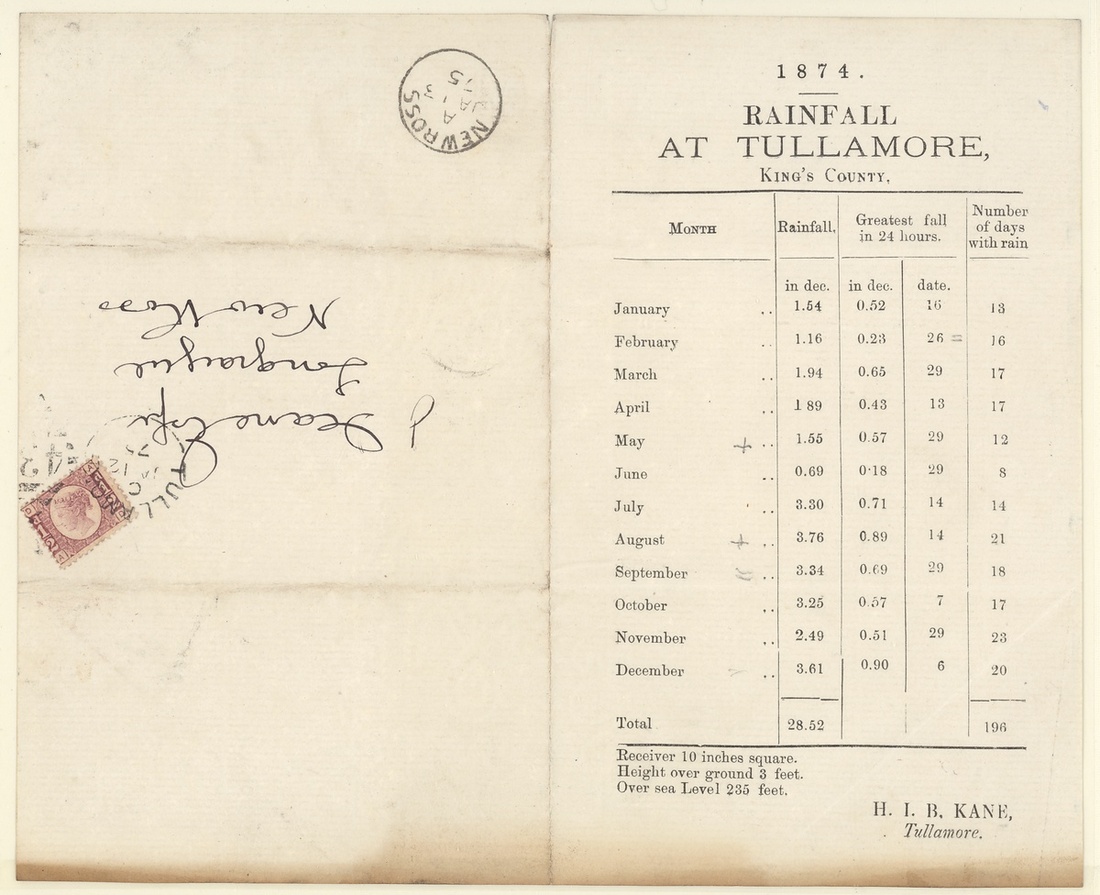 NEW ROSS
A
JA 13
75
J Deane Esqr
Longraigue
New Ross
TULL
C
JA 12
75
1874.
RAINFALL
AT TULLAMORE,
KING'S COUNTY,
MONTH Rainfall, Greatest fall in 24 hours. Number of days with rain
in dec. in dec. date.
January .. 1.54 0.52 16 13
February .. 1.16 0.23 26 = 16
March .. 1.94 0.65 29 17
April .. 1 89 0.43 13 17
May + .. 1.55 0.57 29 12
June .. 0.69 0·18 29 8
July .. 3.30 0.71 14 14
August + .. 3.76 0.89 14 21
September .. 3.34 0.69 29 18
October .. 3.25 0.57 7 17
November .. 2.49 0.51 29 23
December .. 3.61 0.90 6 20
Total 28.52 196
Receiver 10 inches square.
Height over ground 3 feet.
Over sea Level 235 feet.
H. I. B. KANE,
Tullamore.